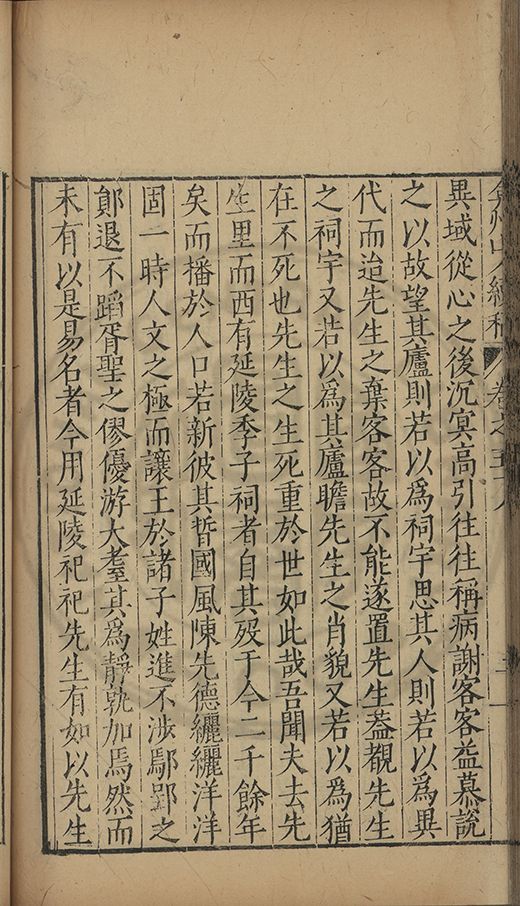 異域從心之後沉冥高引往往稱病謝客客益慕說
之以故望其廬則若以爲祠宇思其人則若以爲異
代而迨先生之棄客客故不能遂置先生葢覩先生
之祠宇又若以爲其廬瞻先生之肖貌又若以爲猶
在不死也先生之生死重於世如此哉吾聞夫去先
生里而西有延陵季子祠者自其歿于今二千餘年
矣而播於人口若新彼其晢國風陳先德纚纚洋洋
固一時人文之極而讓王於諸子姓進不涉鄢郢之
鄓退不蹈胥聖之僇優游大耋其爲靜孰加焉然而
未有以是易名者今用延陵祀祀先生有如以先生